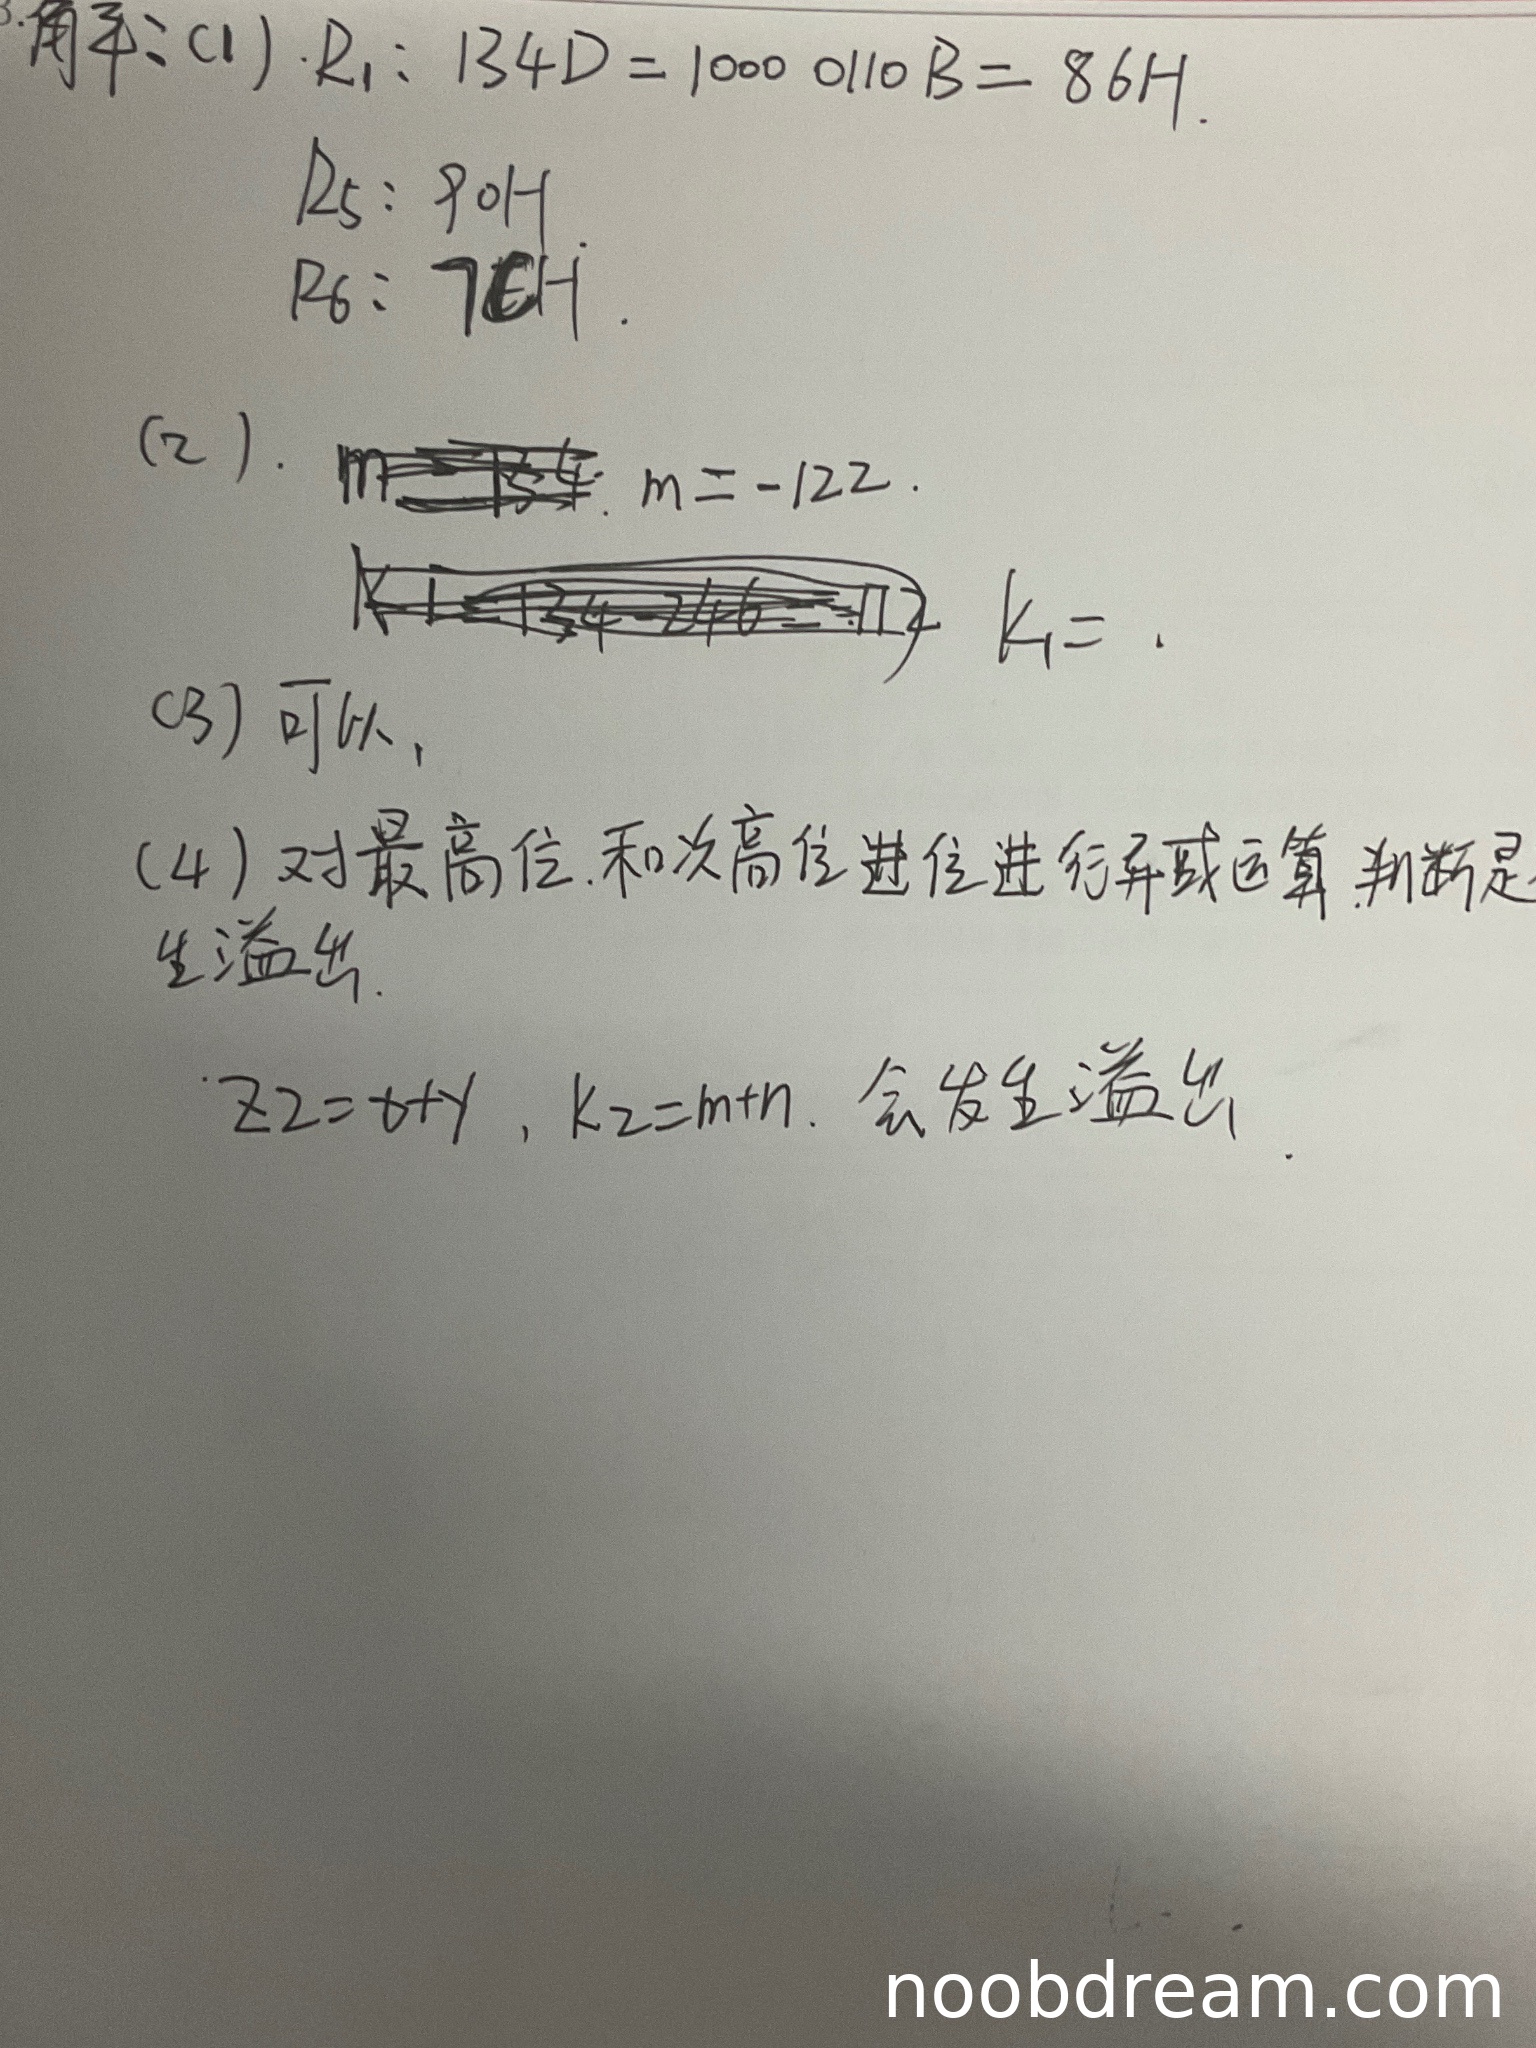 解：(1). R1：134D = 1000 0110 B = 86H.
R5：90H.
R6：7CH.
(2). m = -122.
K1 = .
(3) 可以，
(4) 对最高位.和次高位进位进行异或运算.判断是
生溢出.
Z2=x+y，K2=m+n. 会发生溢出.
noobdream.com